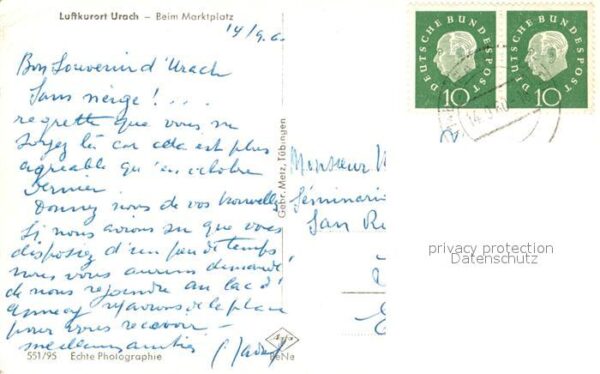 Luftkurort Urach – Beim Marktplatz
14/9.6.
Bon Souvenir d'Urach
Sans neige! ...
regrette que vous ne
soyez là car cela est plus
agréable qu'en octobre
dernier.
Donnez nous de vos nouvelles
Si nous avions su que vous
disposiez d'un peu de temps
nous vous aurions demandé
de nous rejoindre au lac d'
Annecy avons de la place
pour vous recevoir –
meilleures amitiés
551/95 Echte Photographie
BeNe
Gebr. Metz, Tübingen
DEUTSCHE BUNDESPOST
10
DEUTSCHE BUNDESPOST
10
14.9.60
Monsieur
Séminari
San Re
privacy protection
Datenschutz